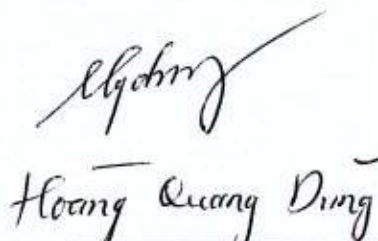 Hoàng Quang Dũng